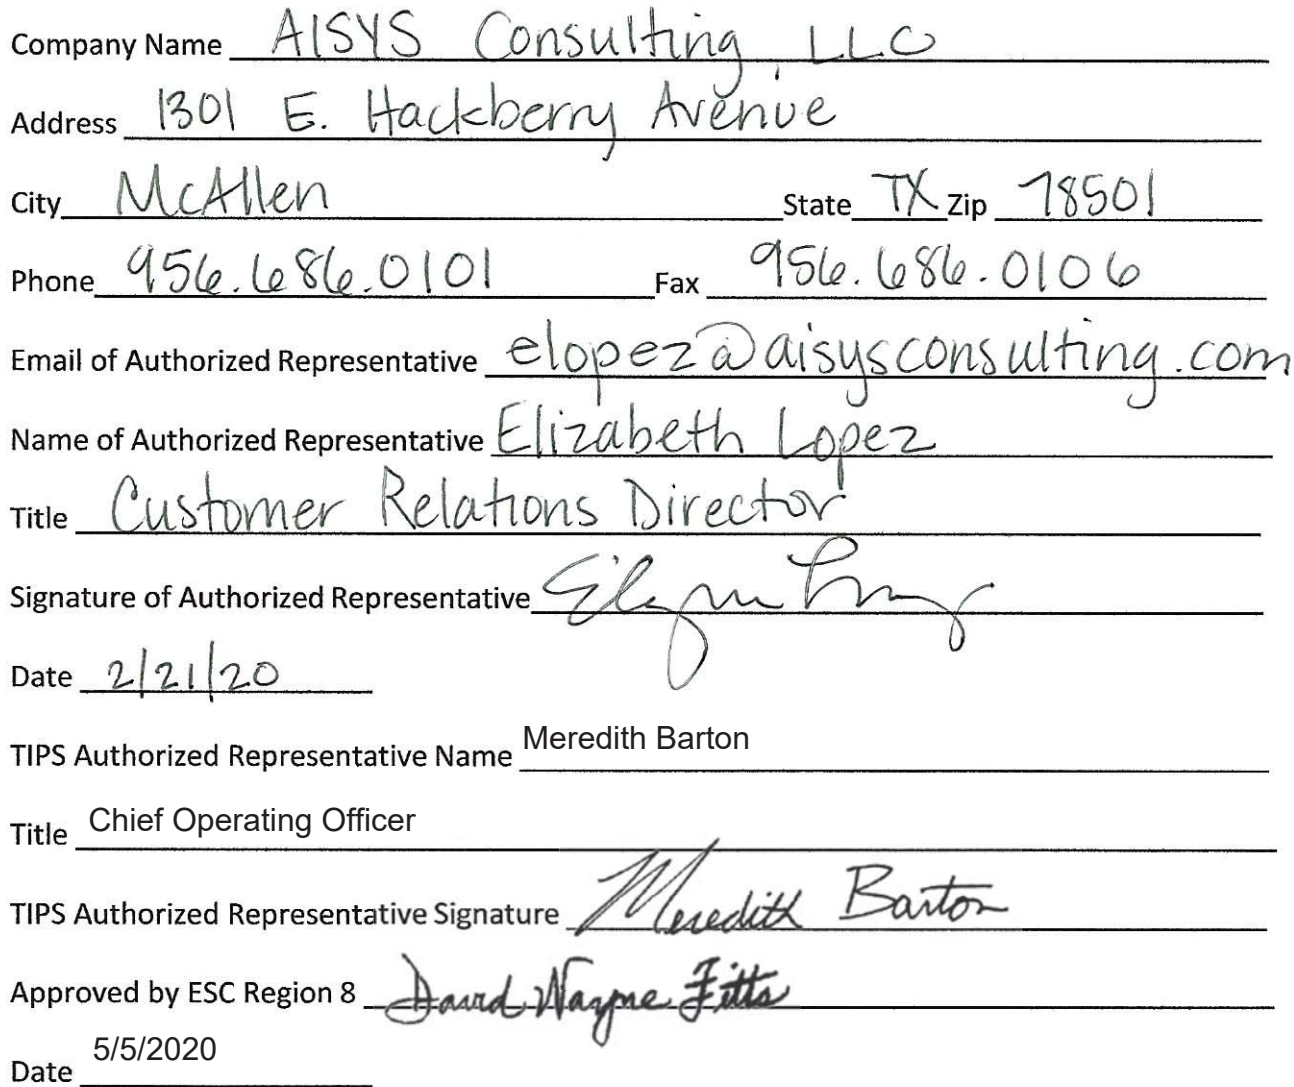 Company Name AISYS Consulting, LLC
Address 1301 E. Hackberry Avenue
City McAllen State TX Zip 78501
Phone 956.686.0101 Fax 956.686.0106
Email of Authorized Representative elopez@aisysconsulting.com
Name of Authorized Representative Elizabeth Lopez
Title Customer Relations Director
Signature of Authorized Representative
Date 2/21/20
TIPS Authorized Representative Name Meredith Barton
Title Chief Operating Officer
TIPS Authorized Representative Signature Meredith Barton
Approved by ESC Region 8 David Wayne Fitts
Date 5/5/2020